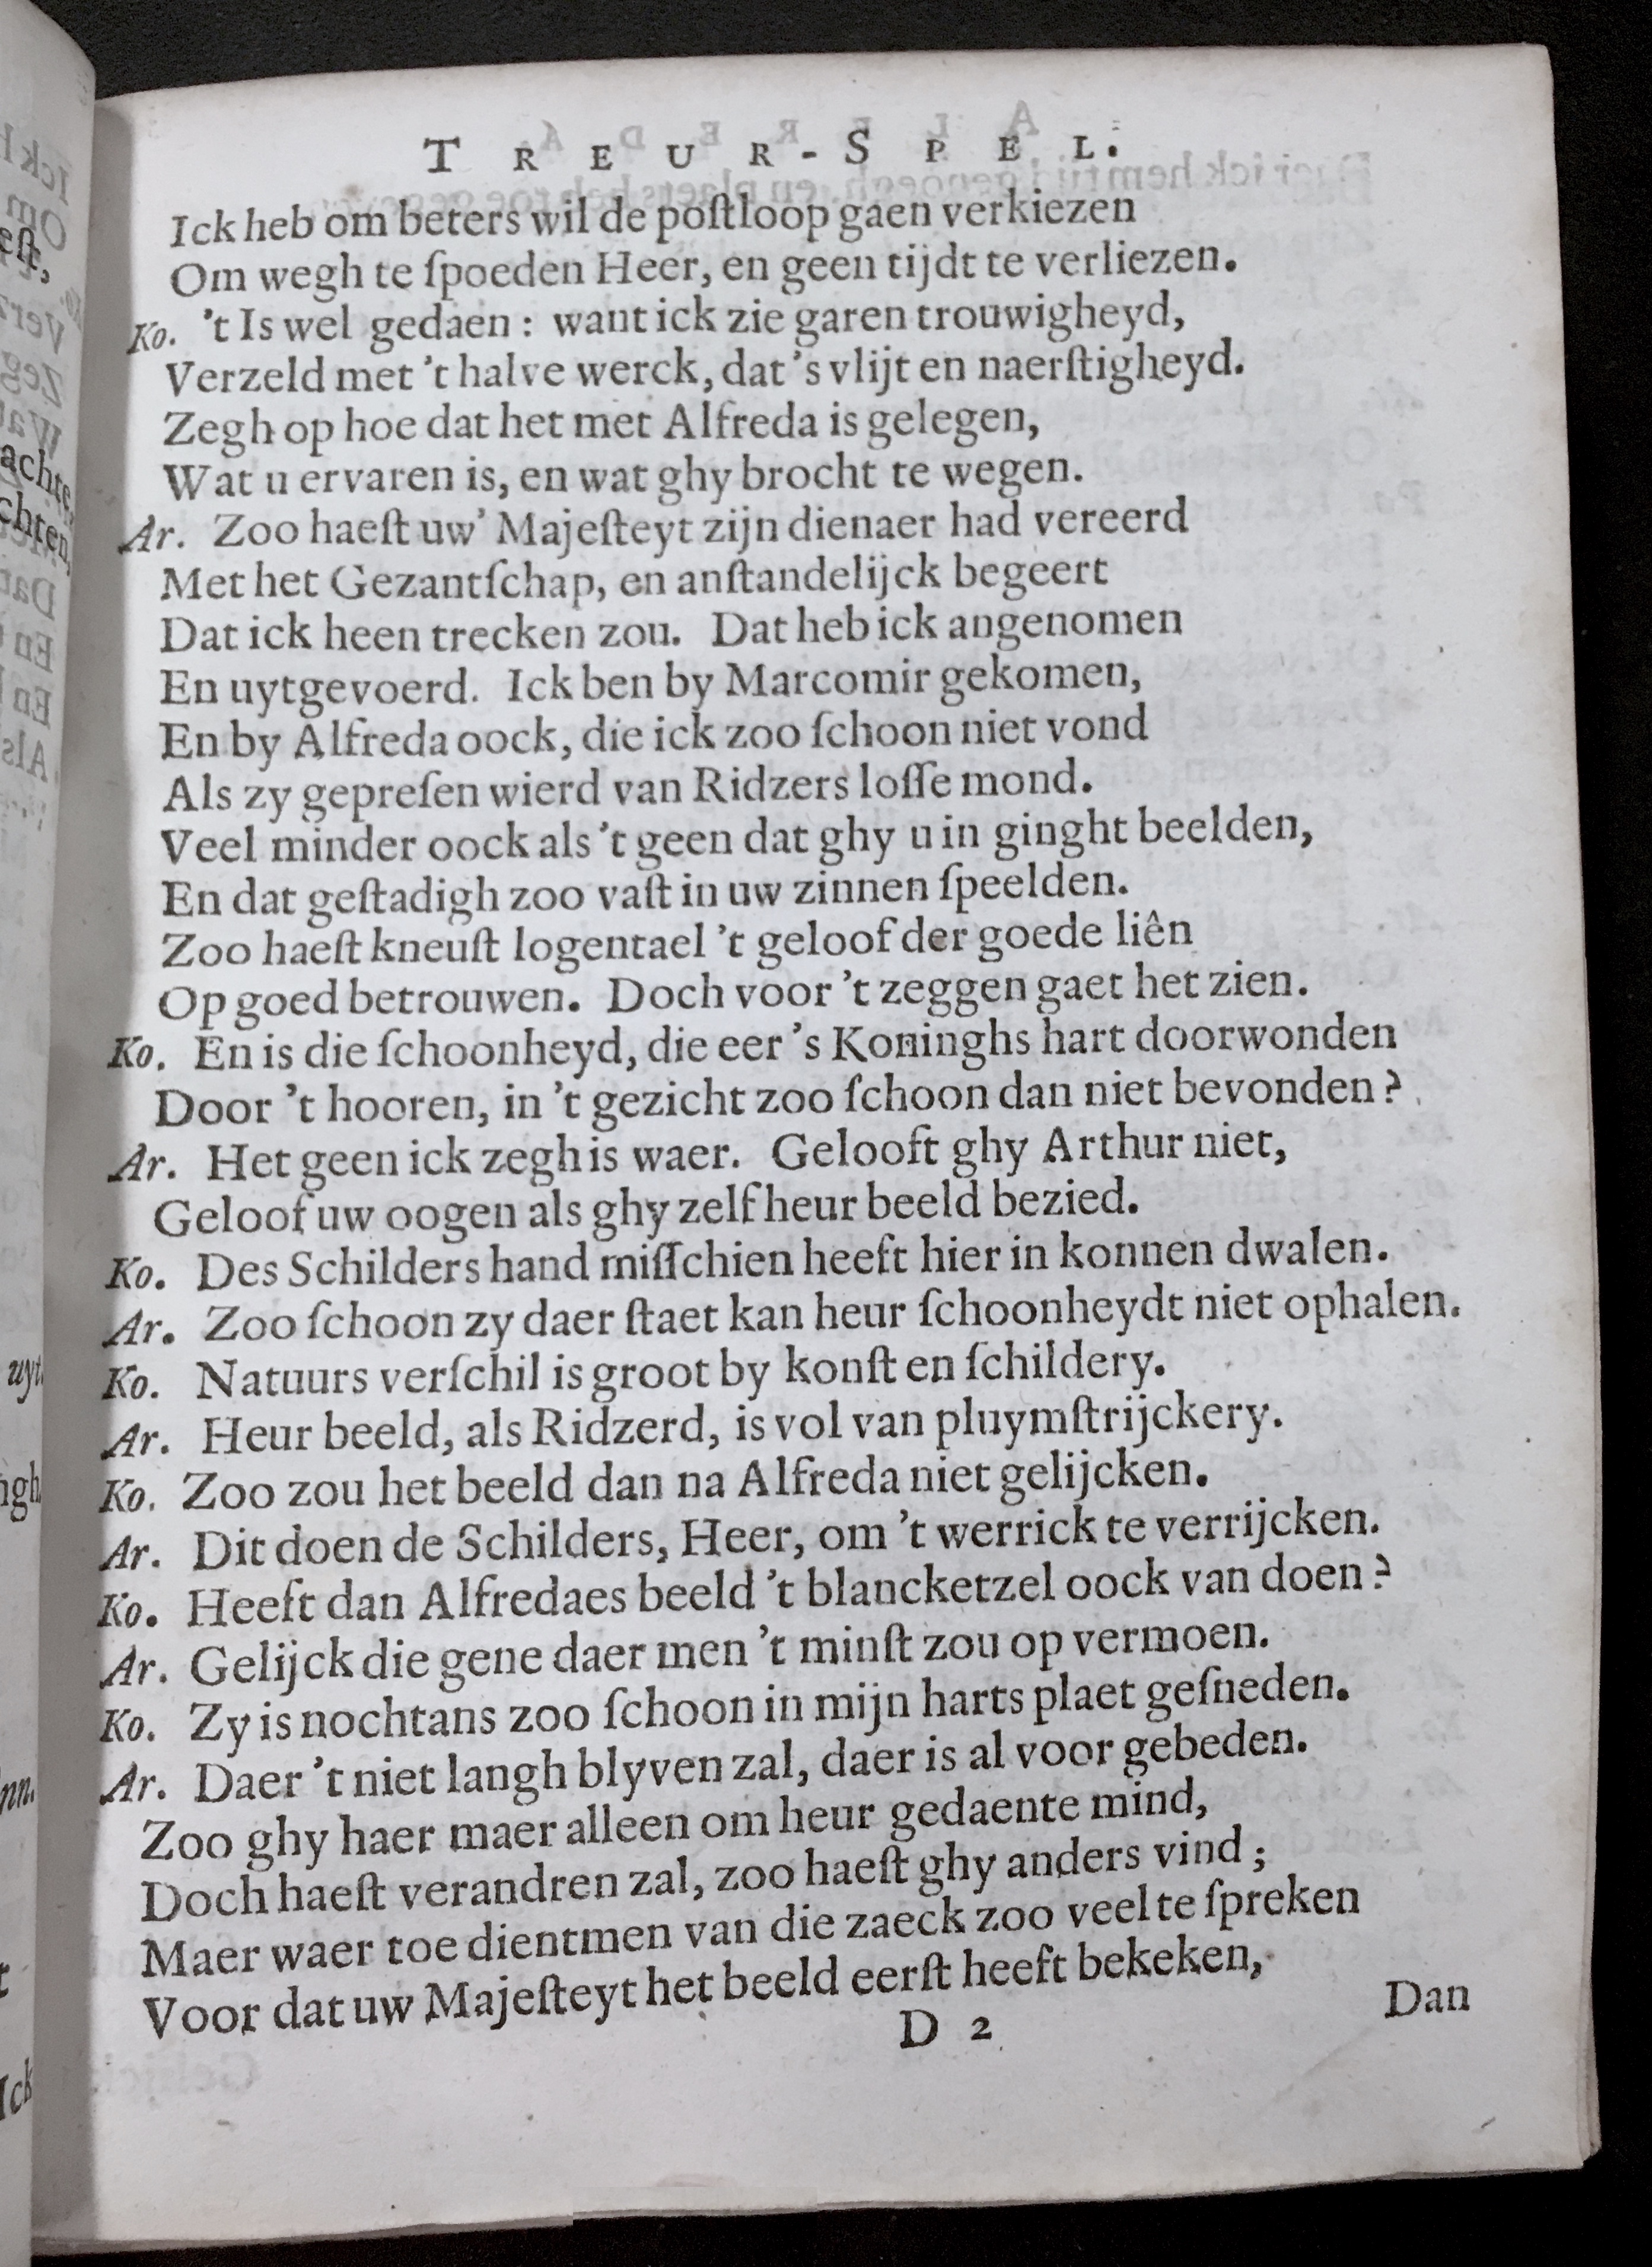 TREUR-SPEL.
Ick heb om beters wil de poſtloop gaen verkiezen
Om wegh te ſpoeden Heer, en geen tijdt te verliezen.
Ko. 't Is wel gedaen: want ick zie garen trouwigheyd,
Verzeld met 't halve werck, dat 's vlijt en naerſtigheyd.
Zegh op hoe dat het met Alfreda is gelegen,
Wat u ervaren is, en wat ghy brocht te wegen.
Ar. Zoo haeſt uw' Majeſteyt zijn dienaer had vereerd
Met het Gezantſchap, en anſtandelijck begeert
Dat ick heen trecken zou. Dat heb ick angenomen
En uytgevoerd. Ick ben by Marcomir gekomen,
En by Alfreda oock, die ick zoo ſchoon niet vond
Als zy gepreſen wierd van Ridzers loſſe mond.
Veel minder oock als 't geen dat ghy u in ginght beelden,
En dat geſtadigh zoo vaſt in uw zinnen ſpeelden.
Zoo haeſt kneuſt logentael 't geloof der goede liên
Op goed betrouwen. Doch voor 't zeggen gaet het zien.
Ko. En is die ſchoonheyd, die eer 's Koninghs hart doorwonden
Door 't hooren, in 't gezicht zoo ſchoon dan niet bevonden?
Ar. Het geen ick zegh is waer. Gelooft ghy Arthur niet,
Geloof uw oogen als ghy zelf heur beeld bezied.
Ko. Des Schilders hand miſſchien heeft hier in konnen dwalen.
Ar. Zoo ſchoon zy daer ſtaet kan heur ſchoonheydt niet ophalen.
Ko. Natuurs verſchil is groot by konſt en ſchildery.
Ar. Heur beeld, als Ridzerd, is vol van pluymſtrijckery.
Ko. Zoo zou het beeld dan na Alfreda niet gelijcken.
Ar. Dit doen de Schilders, Heer, om 't werrick te verrijcken.
Ko. Heeft dan Alfredaes beeld 't blancketzel oock van doen?
Ar. Gelijck die gene daer men 't minſt zou op vermoen.
Ko. Zy is nochtans zoo ſchoon in mijn harts plaet geſneden.
Ar. Daer 't niet langh blyven zal, daer is al voor gebeden.
Zoo ghy haer maer alleen om heur gedaente mind,
Doch haeſt verandren zal, zoo haeſt ghy anders vind;
Maer waer toe dientmen van die zaeck zoo veel te ſpreken
Voor dat uw Majeſteyt het beeld eerſt heeft bekeken,
D 2
Dan